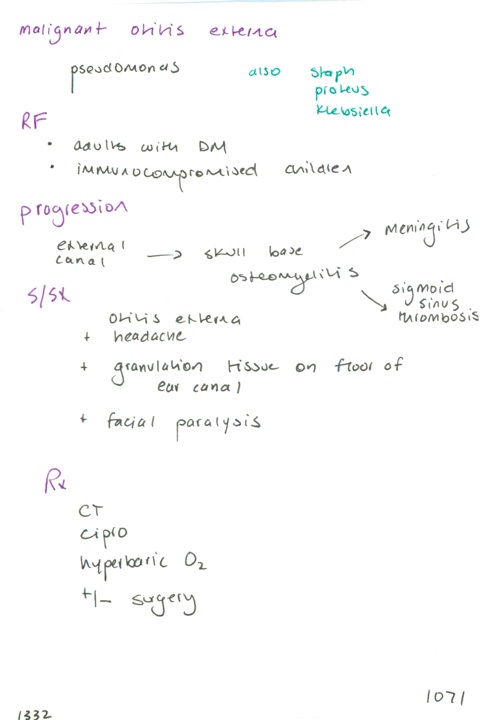 malignant otitis externa
pseudomonas
also staph
proteus
klebsiella
RF
• adults with DM
• immunocompromised children
progression
external canal → skull base osteomyelitis
→ meningitis
→ sigmoid sinus thrombosis
S/Sx
otitis externa
+ headache
+ granulation tissue on floor of
ear canal
+ facial paralysis
Rx
CT
cipro
hyperbaric O₂
+/- surgery
1071
1332